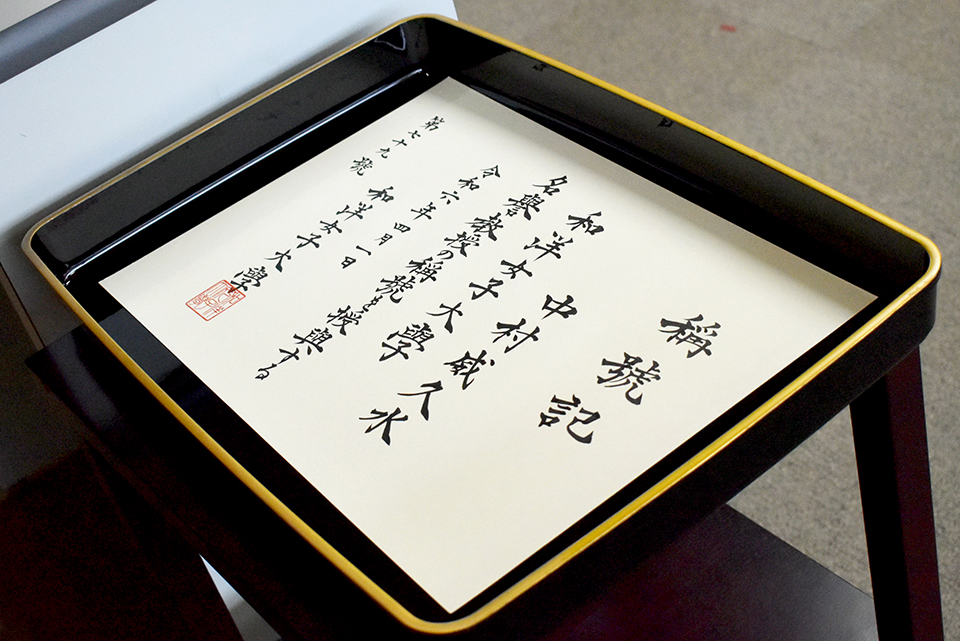 稱號記
中村威久水
和洋女子大學
名譽教授の稱號を授與する
令和六年四月一日
和洋女子大學
第七十九號